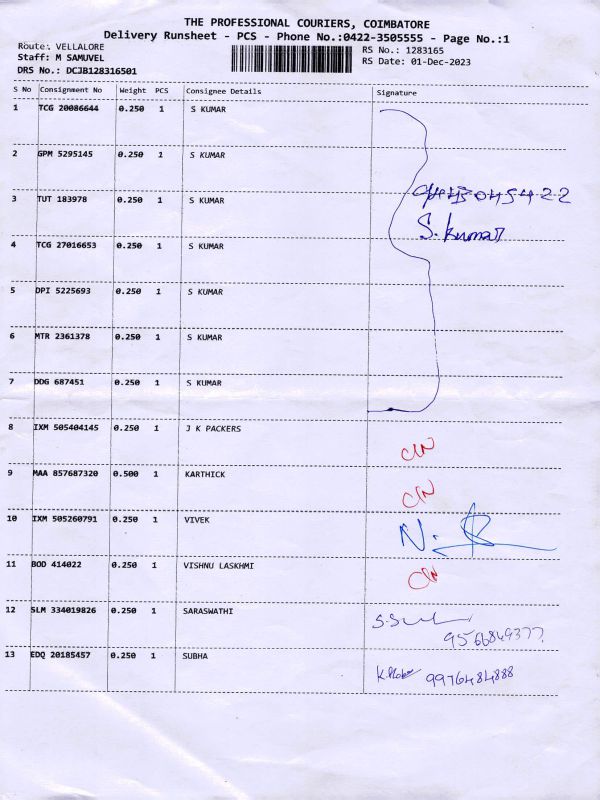 THE PROFESSIONAL COURIERS, COIMBATORE
Delivery Runsheet - PCS - Phone No.:0422-3505555 - Page No.:1
Route: VELLALORE RS No.: 1283165
Staff: M SAMUVEL RS Date: 01-Dec-2023
DRS No.: DCJB128316501
S No Consignment No Weight PCS Consignee Details Signature
1 TCG 20086644 0.250 1 S KUMAR
2 GPM 5295145 0.250 1 S KUMAR
3 TUT 183978 0.250 1 S KUMAR
S.kumar
4 TCG 27016653 0.250 1 S KUMAR
5 DPI 5225693 0.250 1 S KUMAR
6 MTR 2361378 0.250 1 S KUMAR
7 DDG 687451 0.250 1 S KUMAR
8 IXM 505404145 0.250 1 J K PACKERS
9 MAA 857687320 0.500 1 KARTHICK
10 IXM 505260791 0.250 1 VIVEK
11 BOD 414022 0.250 1 VISHNU LASKHMI
12 SLM 334019826 0.250 1 SARASWATHI
9566849377
13 EDQ 20185457 0.250 1 SUBHA
9976484888